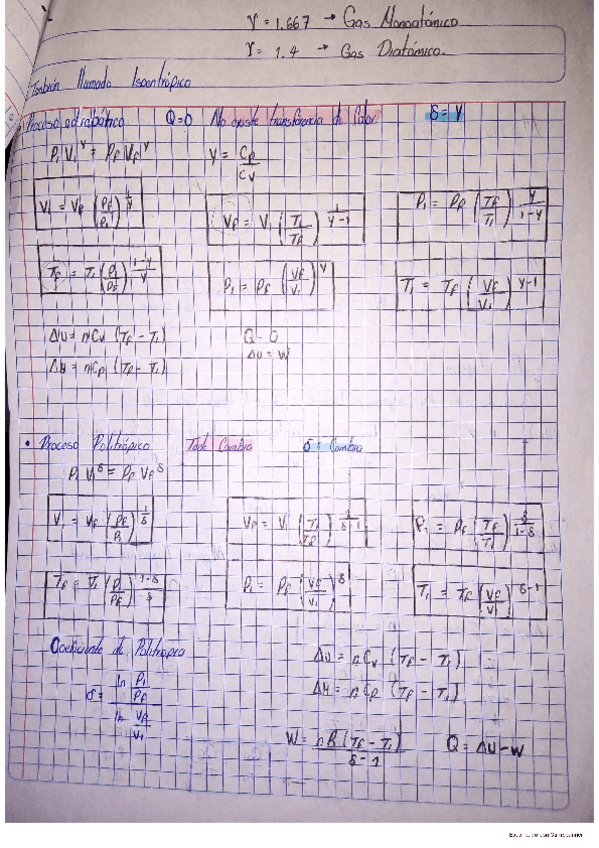 γ = 1.667 → Gas Monoatómico
γ = 1.4 → Gas Diatómico
También llamado Isoentrópico
Proceso adiabático Q=0 No existe transferencia de Calor δ = γ
P₁ V₁^γ = Pf Vf^γ γ = Cp/Cv
V₁ = Vf (Pf/P₁)^(1/γ) Vf = V₁ (T₁/Tf)^(1/(γ-1)) P₁ = Pf (Tf/T₁)^(γ/(1-γ))
Tf = T₁ (P₁/Pf)^((1-γ)/γ) P₁ = Pf (Vf/V₁)^γ T₁ = Tf (Vf/V₁)^(γ-1)
ΔU = nCv (Tf - T₁) Q = 0
ΔH = nCp (Tf - T₁) ΔU = W
• Proceso Politrópico Todo Cambia δ = Cambia
P₁ V₁^δ = Pf Vf^δ
V₁ = Vf (Pf/P₁)^(1/δ) Vf = V₁ (T₁/Tf)^(1/(δ-1)) P₁ = Pf (Tf/T₁)^(δ/(1-δ))
Tf = T₁ (P₁/Pf)^((1-δ)/δ) P₁ = Pf (Vf/V₁)^δ T₁ = Tf (Vf/V₁)^(δ-1)
Coeficiente de Politropía
δ = ln (P₁/Pf) / ln (Vf/V₁)
ΔU = nCv (Tf - T₁)
ΔH = nCp (Tf - T₁)
W = nR (Tf - T₁)/(δ - 1) Q = ΔU - W